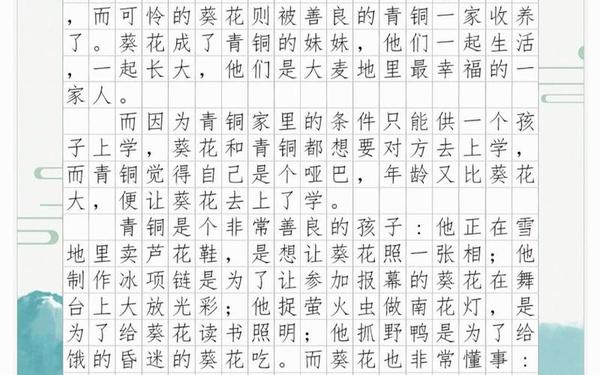 ，而可怜的葵花则被善良的青铜一家收养
了。葵花成了青铜的妹妹，他们一起生活
，一起长大，他们是大麦地里最幸福的一
家人。
而因为青铜家里的条件只能供一个孩
子上学，葵花和青铜都想要对方去上学，
而青铜觉得自己是个哑巴，年龄又比葵花
大，便让葵花去上了学。
青铜是个非常善良的孩子：他正在雪
地里卖芦花鞋，是想让葵花照一张相；他
制作冰项链是为了让参加报幕的葵花在舞
台上大放光彩；他捉萤火虫做南花灯，是
为了给葵花读书照明；他抓野鸭是为了给
饿的昏迷的葵花吃。而葵花也非常懂事：